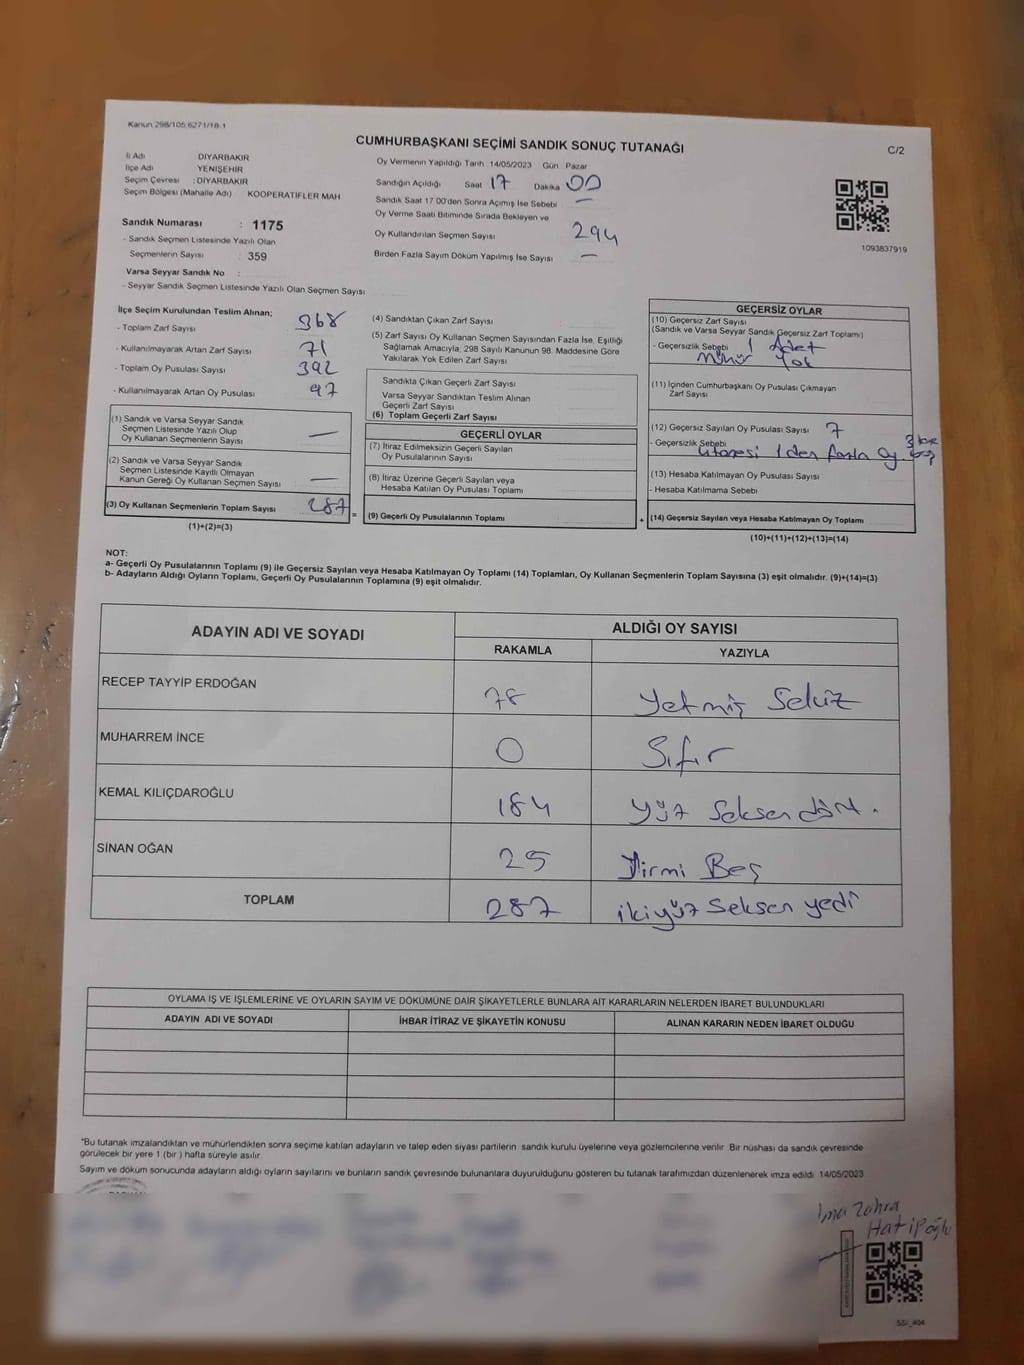 Kanun 298/105,6271/18-1
CUMHURBAŞKANI SEÇİMİ SANDIK SONUÇ TUTANAĞI
C/2
İli Adı DİYARBAKIR
İlçe Adı YENİŞEHİR
Seçim Çevresi : DİYARBAKIR
Seçim Bölgesi (Mahalle Adı) KOOPERATİFLER MAH
Oy Vermenin Yapıldığı Tarih 14/05/2023 Gün Pazar
Sandığın Açıldığı Saat 17 Dakika 00
Sandık Saat 17 00'den Sonra Açımış İse Sebebi —
Oy Verme Saati Bitiminde Sırada Bekleyen ve
Oy Kullandırılan Seçmen Sayısı 294
Birden Fazla Sayım Döküm Yapılmış İse Sayısı —
1093837919
Sandık Numarası : 1175
- Sandık Seçmen Listesinde Yazılı Olan
Seçmenlerin Sayısı : 359
Varsa Seyyar Sandık No :
- Seyyar Sandık Seçmen Listesinde Yazılı Olan Seçmen Sayısı
İlçe Seçim Kurulundan Teslim Alınan;
- Toplam Zarf Sayısı 368
- Kullanılmayarak Artan Zarf Sayısı 71
- Toplam Oy Pusulası Sayısı 392
- Kullanılmayarak Artan Oy Pusulası 97
(1) Sandık ve Varsa Seyyar Sandık
Seçmen Listesinde Yazılı Olup
Oy Kullanan Seçmenlerin Sayısı —
(2) Sandık ve Varsa Seyyar Sandık
Seçmen Listesinde Kayıtlı Olmayan
Kanun Gereği Oy Kullanan Seçmen Sayısı —
(3) Oy Kullanan Seçmenlerin Toplam Sayısı 287 =
(1)+(2)=(3)
(4) Sandıktan Çıkan Zarf Sayısı
(5) Zarf Sayısı Oy Kullanan Seçmen Sayısından Fazla İse, Eşitliği
Sağlamak Amacıyla, 298 Sayılı Kanunun 98. Maddesine Göre
Yakılarak Yok Edilen Zarf Sayısı
Sandıkta Çıkan Geçerli Zarf Sayısı
Varsa Seyyar Sandıktan Teslim Alınan
Geçerli Zarf Sayısı
(6) Toplam Geçerli Zarf Sayısı
GEÇERLİ OYLAR
(7) İtiraz Edilmeksizin Geçerli Sayılan
Oy Pusulalarının Sayısı
(8) İtiraz Üzerine Geçerli Sayılan veya
Hesaba Katılan Oy Pusulası Toplamı
(9) Geçerli Oy Pusulalarının Toplamı +
GEÇERSİZ OYLAR
(10) Geçersiz Zarf Sayısı
(Sandık ve Varsa Seyyar Sandık Geçersiz Zarf Toplamı)
- Geçersizlik Sebebi 1 Adet
Mühür Yok
(11) İçinden Cumhurbaşkanı Oy Pusulası Çıkmayan
Zarf Sayısı
(12) Geçersiz Sayılan Oy Pusulası Sayısı 7
- Geçersizlik Sebebi
1 den fazla oy 3 boş
(13) Hesaba Katılmayan Oy Pusulası Sayısı
- Hesaba Katılmama Sebebi
(14) Geçersiz Sayılan veya Hesaba Katılmayan Oy Toplamı
(10)+(11)+(12)+(13)=(14)
NOT:
a- Geçerli Oy Pusulalarının Toplamı (9) ile Geçersiz Sayılan veya Hesaba Katılmayan Oy Toplamı (14) Toplamları, Oy Kullanan Seçmenlerin Toplam Sayısına (3) eşit olmalıdır. (9)+(14)=(3)
b- Adayların Aldığı Oyların Toplamı, Geçerli Oy Pusulalarının Toplamına (9) eşit olmalıdır.
ADAYIN ADI VE SOYADI
ALDIĞI OY SAYISI
RAKAMLA YAZIYLA
RECEP TAYYİP ERDOĞAN 78 Yetmiş Sekiz
MUHARREM İNCE 0 Sıfır
KEMAL KILIÇDAROĞLU 184 Yüz Seksen dört.
SİNAN OĞAN 25 Yirmi Beş
TOPLAM 287 ikiyüz Seksen yedi
OYLAMA İŞ VE İŞLEMLERİNE VE OYLARIN SAYIM VE DÖKÜMÜNE DAİR ŞİKAYETLERLE BUNLARA AİT KARARLARIN NELERDEN İBARET BULUNDUKLARI
ADAYIN ADI VE SOYADI İHBAR İTİRAZ VE ŞİKAYETİN KONUSU ALINAN KARARIN NEDEN İBARET OLDUĞU
*Bu tutanak imzalandıktan ve mühürlendikten sonra seçime katılan adayların ve talep eden siyasi partilerin sandık kurulu üyelerine veya gözlemcilerine verilir. Bir nüshası da sandık çevresinde
görülecek bir yere 1 (bir ) hafta süreyle asılır.
Sayım ve döküm sonucunda adayların aldığı oyların sayılarını ve bunların sandık çevresinde bulunanlara duyurulduğunu gösteren bu tutanak tarafımızdan düzenlenerek imza edildi. 14/05/2023
Zohra
Hatipoğlu